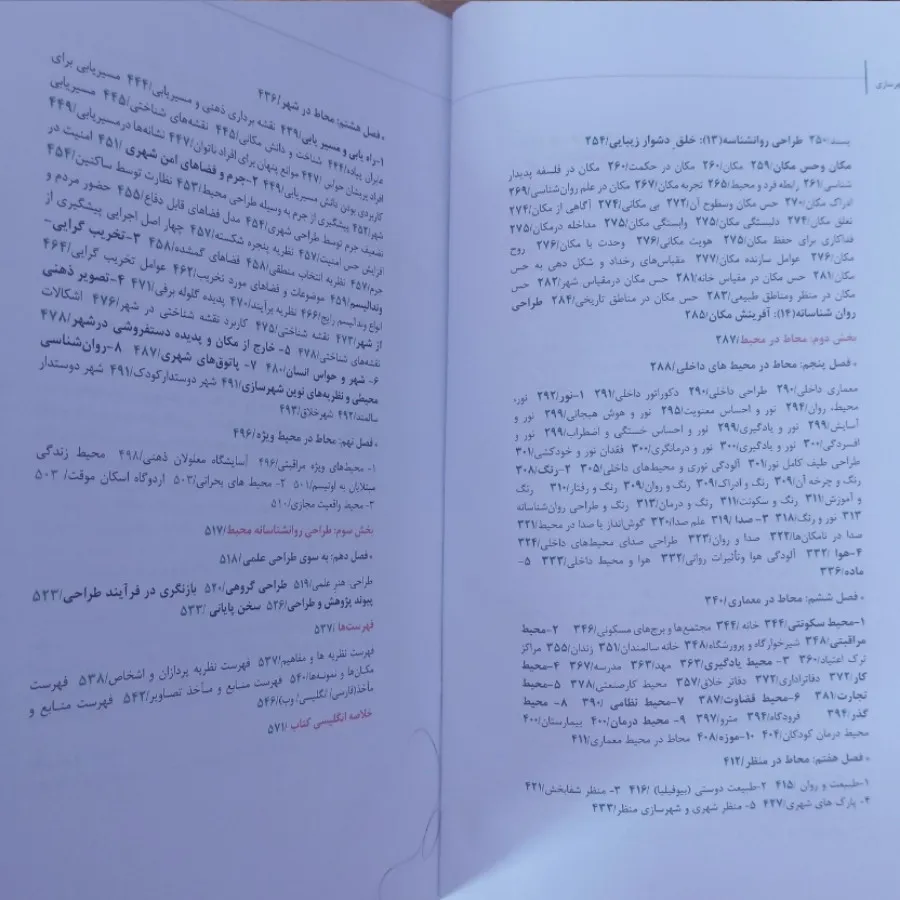 هرسازی
پسند/۲۵۰ طراحی روانشناسانه(۱۳): خلقِ دشوار زیبایی/۲۵۴
مکان وحس مکان/۲۵۹ مکان/۲۶۰ مکان در حکمت/۲۶۰ مکان در فلسفه پدیدار
شناسی/۲۶۱ رابطه فرد و محیط/۲۶۵ تجربه مکان/۲۶۷ مکان در علم روان‌شناسی/۲۶۹
ادراک مکان/۲۷۰ حس مکان وسطوح آن/۲۷۲ بی مکانی/۲۷۴ آگاهی از مکان/۲۷۴
تعلق مکان/۲۷۴ دلبستگی مکان/۲۷۵ وابستگی مکان/۲۷۵ مداخله درمکان/۲۷۵
فداکاری برای حفظ مکان/۲۷۵ هویت مکانی/۲۷۶ وحدت با مکان/۲۷۶ روح
مکان/۲۷۶ عوامل سازنده مکان/۲۷۷ مقیاس‌های رخداد و شکل دهی به حس
مکان/۲۸۱ حس مکان در مقیاس خانه/۲۸۱ حس مکان درمقیاس شهر/۲۸۲ حس
مکان در منظر ومناطق طبیعی/۲۸۳ حس مکان در مناطق تاریخی/۲۸۴ طراحی
روان شناسانه(۱۴): آفرینش مکان/۲۸۵
بخش دوم: محاط در محیط/۲۸۷
• فصل پنجم: محاط در محیط های داخلی/۲۸۸
معماری داخلی/۲۹۰ طراحی داخلی/۲۹۰ دکوراتور داخلی/۲۹۱ ۱-نور/۲۹۲ نور،
محیط، روان/۲۹۴ نور و احساس معنویت/۲۹۵ نور و هوش هیجانی/۲۹۹ نور و
آسایش/۲۹۹ نور و یادگیری/۲۹۹ نور و احساس خستگی و اضطراب/۲۹۹ نور و
افسردگی/۳۰۰ نور و یادگیری/۳۰۰ نور و درمانگری/۳۰۰ فقدان نور و خودکشی/۳۰۱
طراحی طیف کامل نور/۳۰۱ آلودگی نوری و محیط‌های داخلی/۳۰۵ ۲-رنگ/۳۰۸
رنگ و چرخه آن/۳۰۹ رنگ و ادراک/۳۰۹ رنگ و روان/۳۰۹ رنگ و رفتار/۳۱۰ رنگ
و آموزش/۳۱۱ رنگ و سکونت/۳۱۱ رنگ و درمان/۳۱۳ رنگ و طراحی روان‌شناسانه
۳۱۳ نور و رنگ/۳۱۸ ۳- صدا /۳۱۹ علم صدا/۳۲۰ گوش‌انداز یا صدا در محیط/۳۲۱
صدا در نامکان‌ها/۳۲۲ صدا و روان/۳۲۳ طراحی صدای محیط‌های داخلی/۳۲۴
۴-هوا /۳۳۲ آلودگی هوا وتأثیرات روانی/۳۳۲ هوا و محیط داخلی/۳۳۳ ۵-
ماده/۳۳۶
• فصل ششم: محاط در معماری/۳۴۰
۱-محیط سکونتی/۳۴۴ خانه /۳۴۴ مجتمع‌ها و برج‌های مسکونی/۳۴۶ ۲-محیط
مراقبتی/۳۴۸ شیرخوارگاه و پرورشگاه/۳۴۸ خانه سالمندان/۳۵۱ زندان/۳۵۵ مراکز
ترک اعتیاد/۳۶۰ ۳- محیط یادگیری/۳۶۳ مهد/۳۶۳ مدرسه/۳۶۷ ۴-محیط
کار/۳۷۲ دفاتراداری/۳۷۲ دفاتر خلاق/۳۵۷ محیط کارصنعتی/۳۷۸ ۵-محیط
تجارت/۳۸۱ ۶-محیط قضاوت/۳۸۷ ۷-محیط نظامی /۳۹۰ ۸- محیط
گذر/۳۹۴ فرودگاه/۳۹۴ مترو/۳۹۷ ۹- محیط درمان/۴۰۰ بیمارستان/۴۰۰
محیط درمان کودکان/۴۰۴ ۱۰-موزه/۴۰۸ محاط در محیط معماری/۴۱۱
• فصل هفتم: محاط در منظر/۴۱۲
۱-طبیعت و روان /۴۱۵ ۲-طبیعت دوستی (بیوفیلیا) /۴۱۶ ۳- منظر شفابخش/۴۲۱
۴- پارک های شهری/۴۲۷ ۵- منظر شهری و شهرسازی منظر/۴۳۳
• فصل هشتم: محاط در شهر/۴۳۶
۱-راه یابی و مسیر یابی/۴۳۹ نقشه برداری ذهنی و مسیریابی/۴۴۴ مسیریابی برای
عابران پیاده/۴۴۴ شناخت و دانش مکانی/۴۴۵ نقشه‌های شناختی/۴۴۵ مسیریابی
افراد پریشان حواس/۴۴۷ موانع پنهان برای افراد ناتوان/۴۴۷ نشانه‌ها درمسیریابی/۴۴۹
کاربردی بودن دانش مسیریابی/۴۴۹ ۲-جرم و فضاهای امن شهری /۴۵۱ امنیت در
شهر/۴۵۲ پیشگیری از جرم به وسیله طراحی محیط/۴۵۳ نظارت توسط ساکنین/۴۵۴
تضعیف جرم توسط طراحی شهری/۴۵۴ مدل فضاهای قابل دفاع/۴۵۵ حضور مردم و
افزایش حس امنیت/۴۵۷ نظریه پنجره شکسته/۴۵۷ چهار اصل اجرایی پیشگیری از
جرم/۴۵۷ نظریه انتخاب منطقی/۴۵۸ فضاهای گمشده/۴۵۸ ۳-تخریب گرایی-
وندالیسم/۴۵۹ موضوعات و فضاهای مورد تخریب/۴۶۲ عوامل تخریب گرایی/۴۶۴
انواع وندالیسم رایج/۴۶۶ نظریه برآیند/۴۷۰ پدیده گلوله برفی/۴۷۱ ۴-تصویر ذهنی
از شهر/۴۷۳ نقشه شناختی/۴۷۵ کاربرد نقشه شناختی در شهر/۴۷۶ اشکالات
نقشه‌های شناختی/۴۷۸ ۵- خارج از مکان و پدیده دستفروشی درشهر/۴۷۸
۶- شهر و حواس انسان/۴۸۰ ۷- پاتوق‌های شهری/۴۸۷ ۸-روان‌شناسی
محیطی و نظریه‌های نوین شهرسازی/۴۹۱ شهر دوستدارکودک/۴۹۱ شهر دوستدار
سالمند/۴۹۲ شهرخلاق/۴۹۳
• فصل نهم: محاط در محیط ویژه/۴۹۶
۱- محیط‌های ویژه مراقبتی/۴۹۶ آسایشگاه معلولان ذهنی/۴۹۸ محیط زندگی
مبتلایان به اوتیسم/۵۰۱ ۲- محیط های بحرانی/۵۰۳ اردوگاه اسکان موقت/ ۵۰۳
۳- محیط واقعیت مجازی/۵۱۰
بخش سوم: طراحی روانشناسانه محیط/۵۱۷
• فصل دهم: به سوی طراحی علمی/۵۱۸
طراحی: هنر علمی/۵۱۹ طراحی گروهی/۵۲۰ بازنگری در فرآیند طراحی/۵۲۳
پیوند پژوهش و طراحی/۵۲۶ سخن پایانی /۵۳۳
فهرست‌ها /۵۳۷
فهرست نظریه ها و مفاهیم/۵۳۷ فهرست نظریه پردازان و اشخاص/۵۳۸ فهرست
مکان‌ها و نمونه‌ها/۵۴۰ فهرست منابع و مآخذ تصاویر/۵۴۲ فهرست منابع و
مآخذ(فارسی/ انگلیسی/ وب)/۵۴۶
خلاصه انگلیسی کتاب /۵۷۱